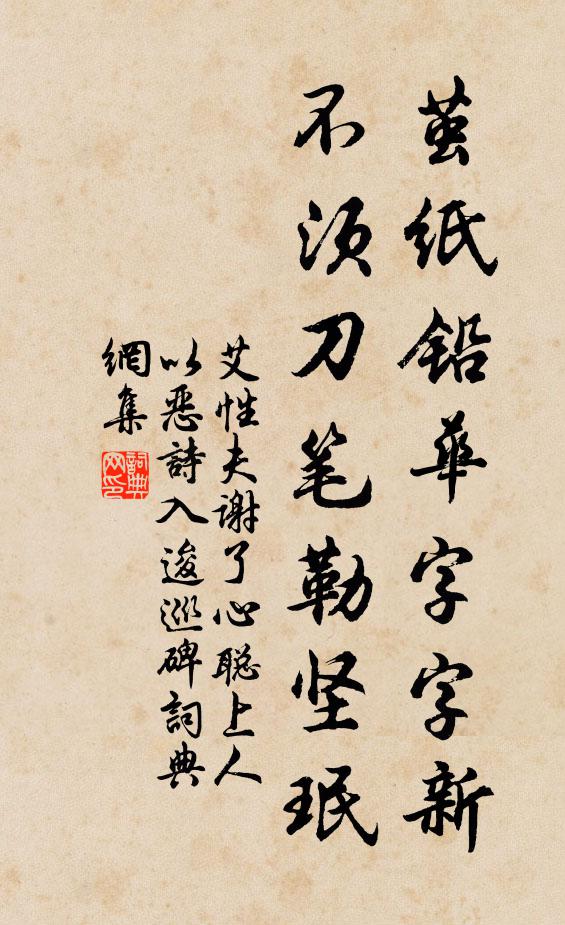 茧纸铅华字字新
不须刀笔勒坚珉
艾性夫谢了心聪上人
以恶詩入逡巡碑詞典
網集
詞典网印